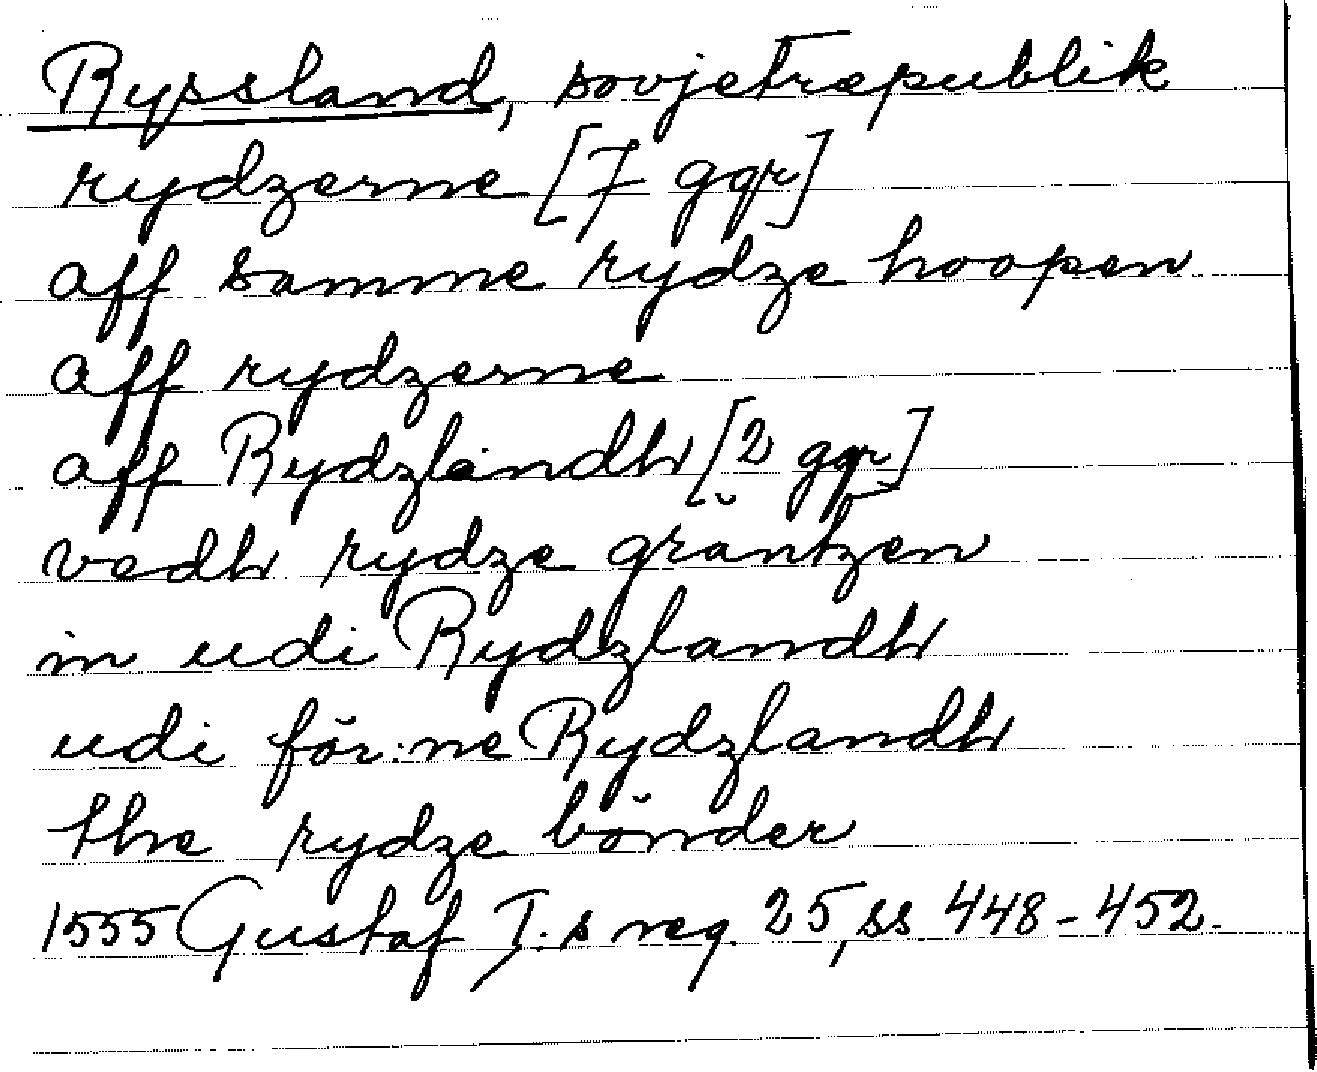 Ryssland, sovjetrepublik
rydzerne [7 ggr]
aff samme rydze hoopen
aff rydzerne
aff Rydzlandh [2 ggr]
vedh rydze gräntzen
in udi Rydzlandh
udi för:ne Rydzlandh
the rydze bönder
1555 Gustaf I:s reg. 25, ss 448-452.